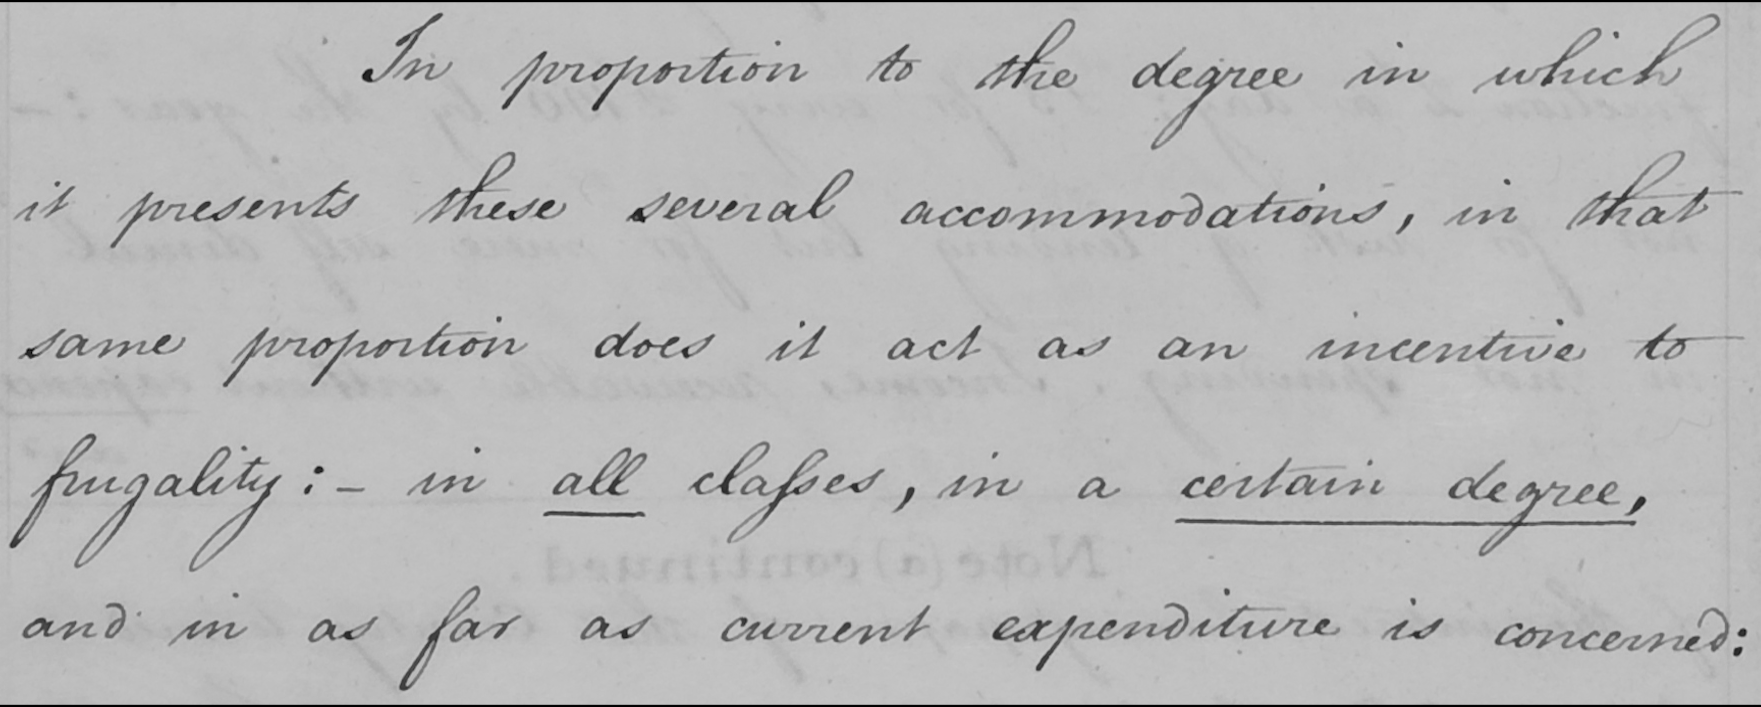 In proportion to the degree in which
it presents these several accommodations, in that
same proportion does it act as an incentive to
frugality :- in all claſses, in a certain degree,
and in as far as current expenditure is concerned: